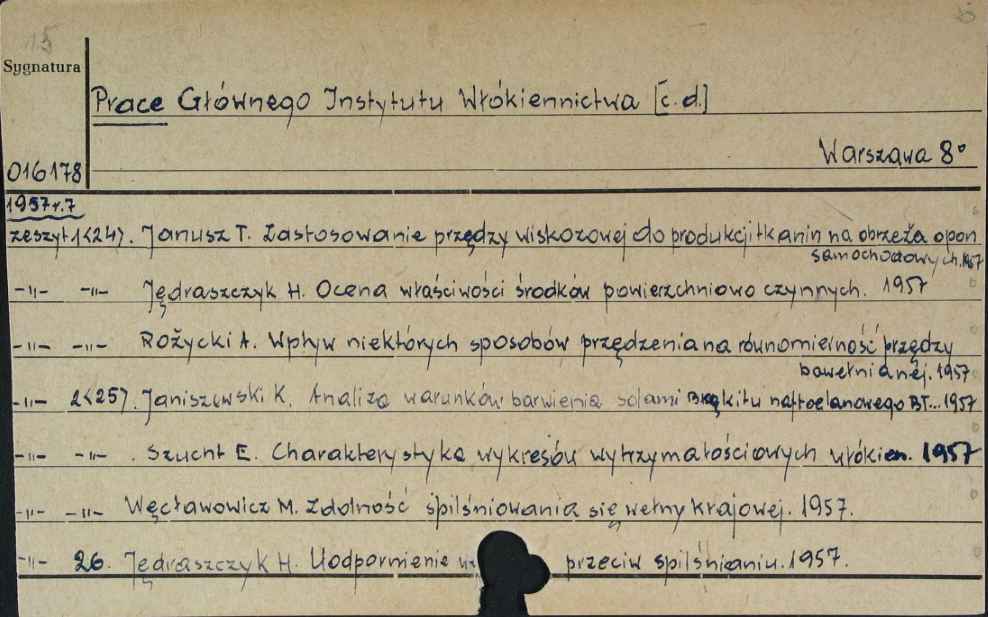 15
Sygnatura
Prace Głównego Instytutu Włókiennictwa [c.d.]
Warszawa 8°
016178
1957 r.7
zeszyt 1<24>. Janusz T. Zastosowanie przędzy wiskozowej do produkcji tkanin na obrzeża opon
samochodowych. 1957
-"- -"- Jędraszczyk H. Ocena właściwości środków powierzchniowo czynnych. 1957
-"- -"- Rożycki A. Wpływ niektórych sposobów przędzenia na równomierność przędzy
bawełnianej. 1957
-"- 2<25>. Janiszewski K. Analiza warunków barwienia solami Błękitu naftoelanowego BT... 1957
-"- -"- . Szucht E. Charakterystyka wykresów wytrzymałościowych włókien. 1957
-"- -"- Węcławowicz M. Zdolność spilśniowania się wełny krajowej. 1957.
-"- 26. Jędraszczyk H. Uodpornienie przeciw spilśnianiu. 1957.